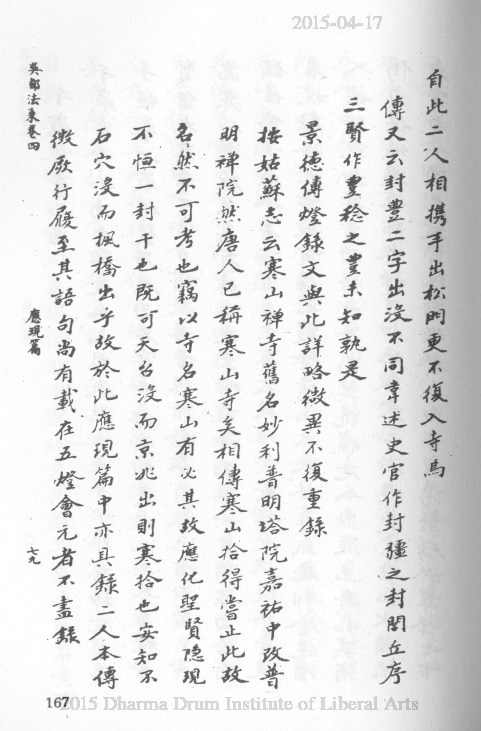 2015-04-17
自此二人相攜手出松門更不復入寺焉
傳又云封豐二字出沒不同韋述史官作封疆之封閭丘序
三賢作豐稔之豐未知孰是
景德傳燈錄文與此詳略微異不復重錄
按姑蘇志云寒山禅寺舊名妙利普明塔院嘉祐中改普
明禅院然唐人已稱寒山寺矣相傳寒山拾得嘗止此故
名然不可考也竊以寺名寒山有必其故應化聖賢隐現
不恒一封干也既可天台沒而京兆出則寒拾也安知不
石穴沒而楓橋出乎故於此應現篇中亦具錄二人本傳
微厥行履至其語句尚有載在五燈會元者不盡錄
吳都法乘卷四
應現篇
七九
167
2015 Dharma Drum Institute of Liberal Arts